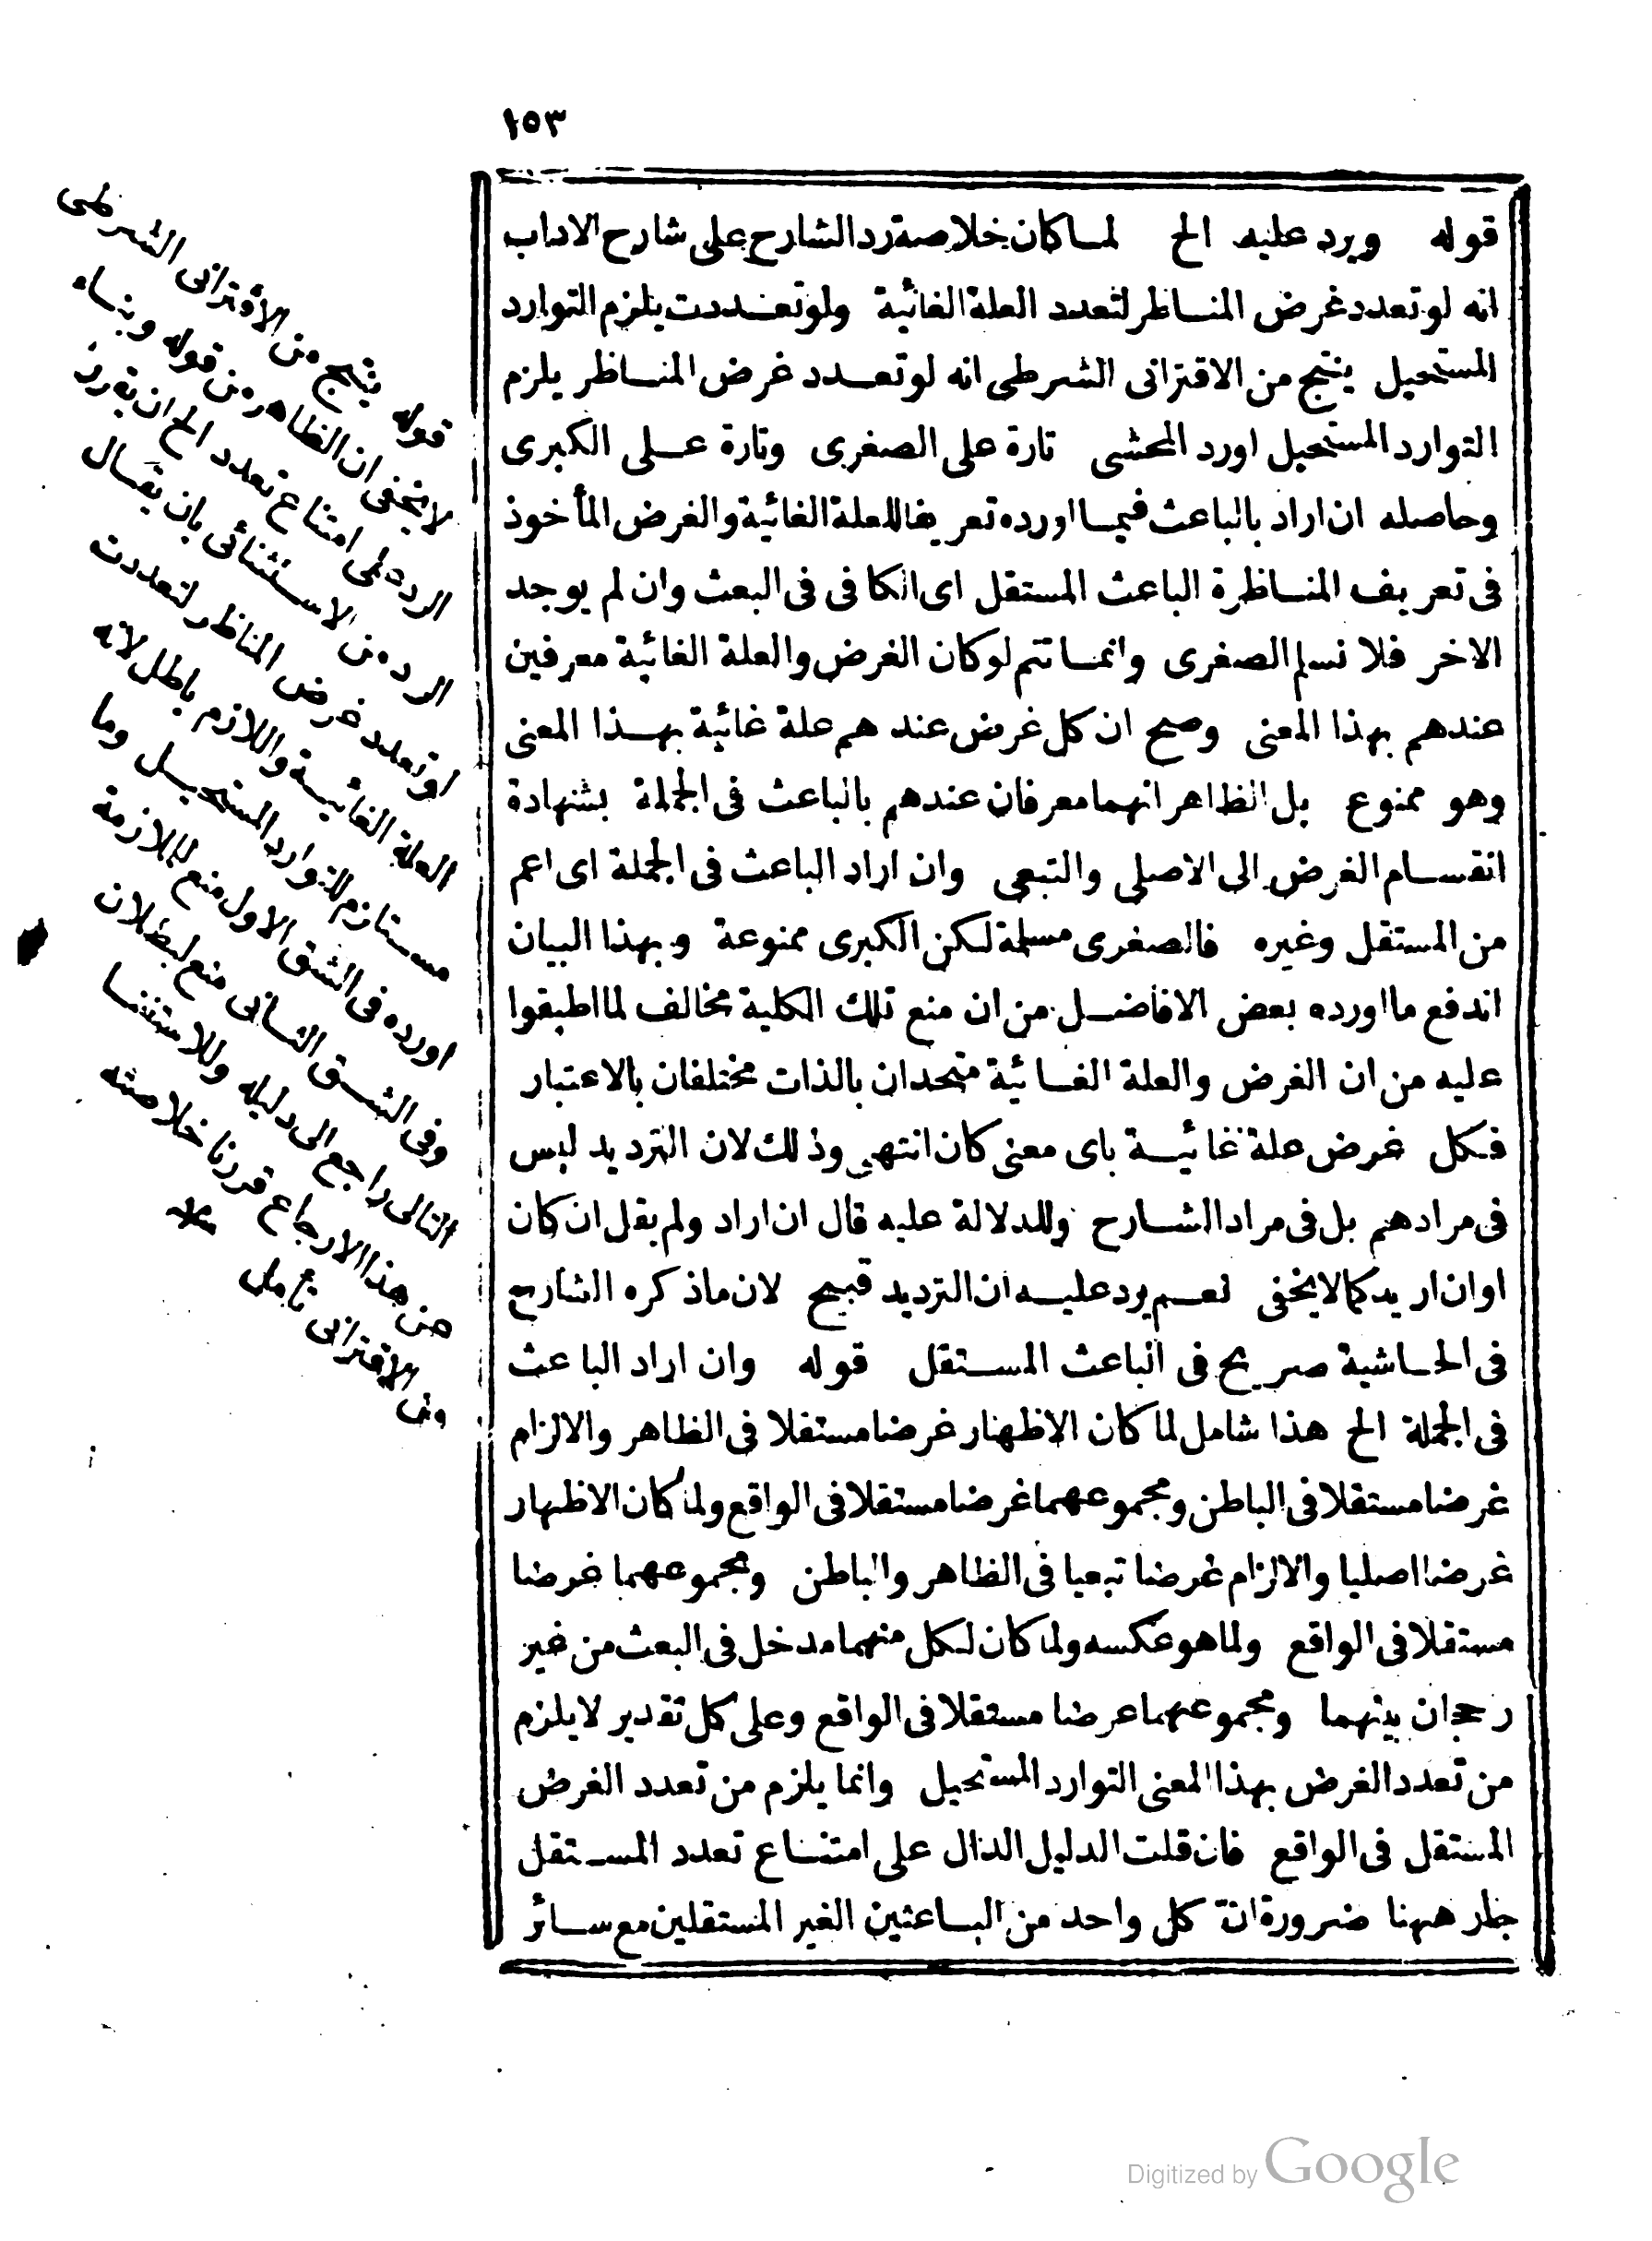 ١٥٣
قوله ويرد عليه الخ لما كان خلاصة رد الشارح على شارح الاداب
انه لو تعدد غرض المناظر لتعدد العلة الغائية ولو تعددت يلزم التوارد
المستحيل ينتج من الاقترانى الشرطى انه لو تعدد غرض المناظر يلزم
التوارد المستحيل اورد المحشى تارة على الصغرى وتارة على الكبرى
وحاصله ان اراد بالباعث فيما اورده تعريفا للعلة الغائية والغرض المأخوذ
فى تعريف المناظرة الباعث المستقل اى الكافى فى البعث وان لم يوجد
الاخر فلا نسلم الصغرى وانما تتم لو كان الغرض والعلة الغائية معرفين
عندهم بهذا المعنى وصح ان كل غرض عندهم علة غائية بهذا المعنى
وهو ممنوع بل الظاهر انهما معرفان عندهم بالباعث فى الجملة بشهادة
انقسام الغرض الى الاصلى والتبعى وان اراد الباعث فى الجملة اى اعم
من المستقل وغيره فالصغرى مسلمة لكن الكبرى ممنوعة وبهذا البيان
اندفع ما اورده بعض الافاضل من ان منع تلك الكلية مخالف لما اطبقوا
عليه من ان الغرض والعلة الغائية متحدان بالذات مختلفان بالاعتبار
فكل غرض علة غائية باى معنى كان انتهى وذلك لان الترديد ليس
فى مرادهم بل فى مراد الشارح وللدلالة عليه قال ان اراد ولم يقل ان كان
او ان اريد كما لا يخفى نعم يرد عليه ان الترديد قبيح لان ما ذكره الشارح
فى الحاشية صريح فى الباعث المستقل قوله وان اراد الباعث
فى الجملة الخ هذا شامل لما كان الاظهار غرضا مستقلا فى الظاهر والالزام
غرضا مستقلا فى الباطن ومجموعهما غرضا مستقلا فى الواقع ولما كان الاظهار
غرضا اصليا والالزام غرضا تبعيا فى الظاهر والباطن ومجموعهما غرضا
مستقلا فى الواقع ولما هو عكسه ولما كان لكل منهما مدخل فى البعث من غير
رجحان بينهما ومجموعهما غرضا مستقلا فى الواقع وعلى كل تقدير لا يلزم
من تعدد الغرض بهذا المعنى التوارد المستحيل وانما يلزم من تعدد الغرض
المستقل فى الواقع فان قلت الدليل الدال على امتناع تعدد المستقل
جار ههنا ضرورة ان كل واحد من الباعثين الغير المستقلين مع سائر
قوله ينتج من الاقترانى الشرطى
لا يخفى ان الظاهر من قوله وبناء
الرد على امتناع تعدد الخ ان تقرير
الرد من الاستثنائى بان يقال
لو تعدد غرض المناظر لتعددت
العلة الغائية واللازم باطل لانه
مستلزم للتوارد المستحيل وما
اورده فى الشق الاول منع للملازمة
وفى الشق الثانى منع لبطلان
التالى راجع الى دليله وللاستغنا
عن هذا الارجاع قررنا خلاصته
من الاقترانى تأمل منه
Digitized by Google